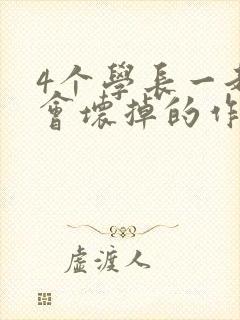 4个學長一
會壞掉的作
虛渡人